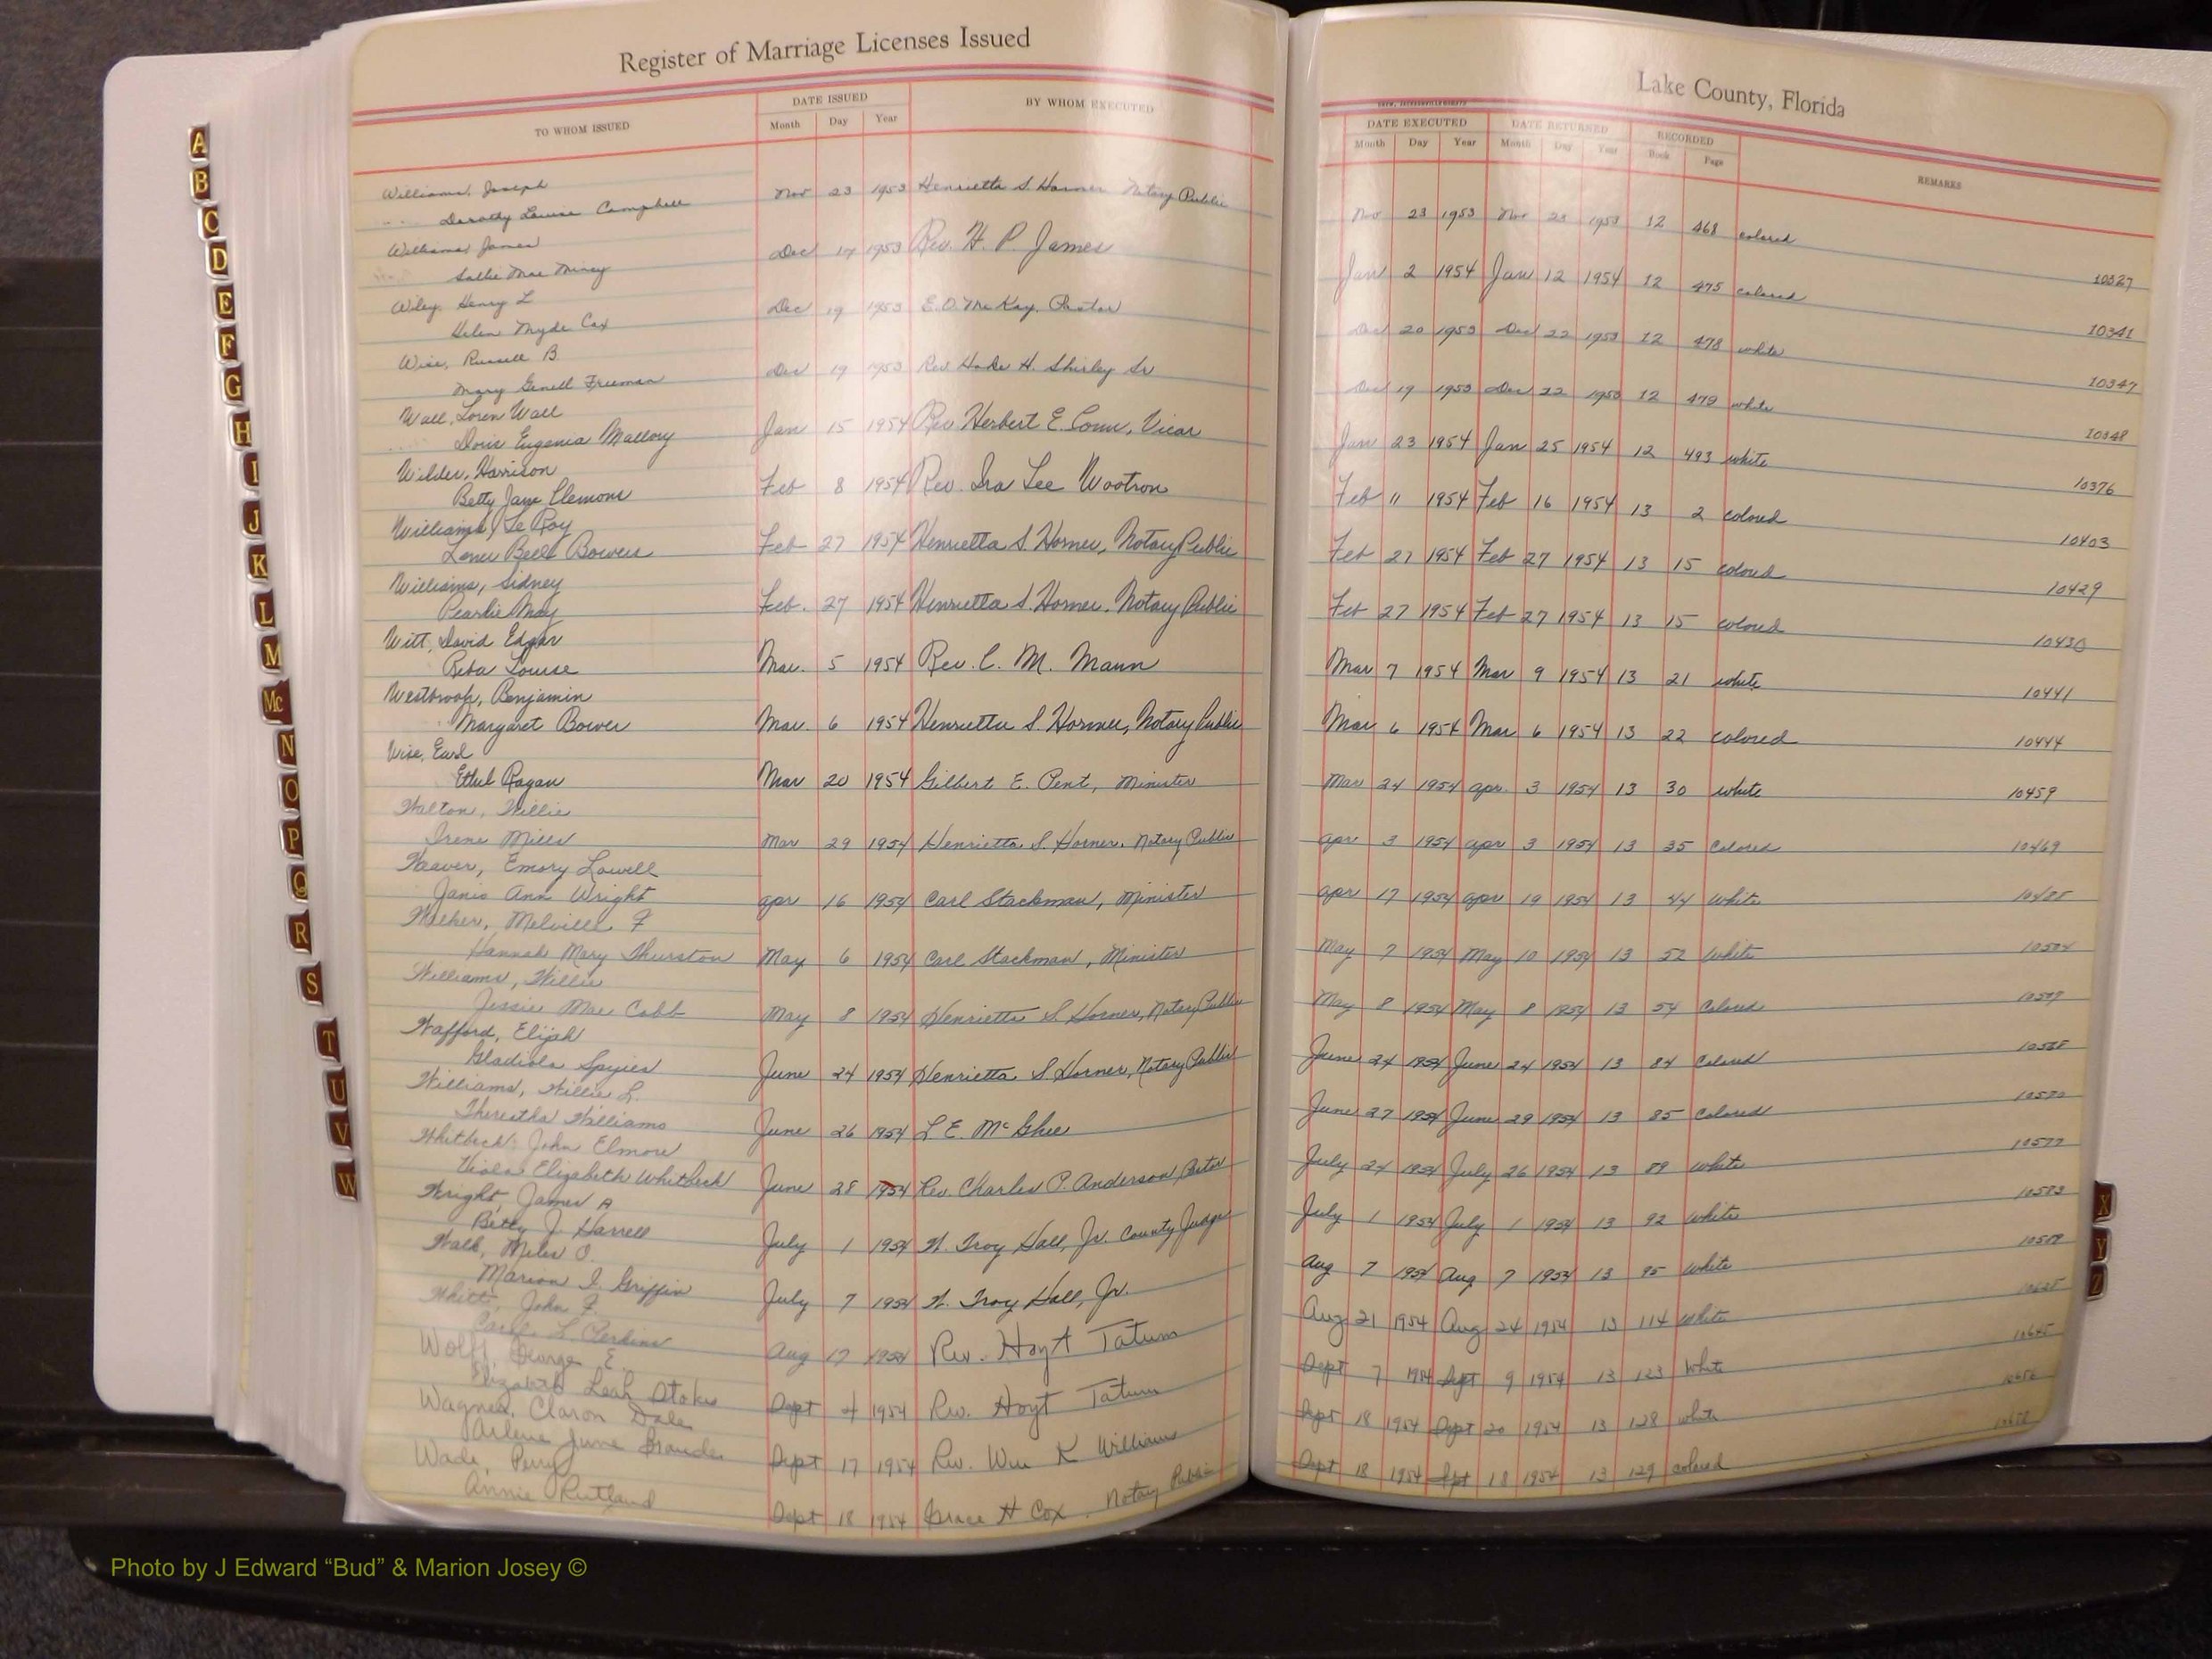 Register of Marriage Licenses Issued
TO WHOM ISSUED
DATE ISSUED
Month Day Year
BY WHOM EXECUTED
Williams, Joseph
Dorothy Louise Campbell
Nov 23 1953 Henrietta S. Horner Notary Public
Williams, James
Sallie Mae
Dec 1953 Rev. H. P. James
Wiley, Henry L
Helen Cox
Dec 19 1953 E. O. McKay, Pastor
Wise, Russell B.
Mary Genell Freeman
Dec 19 1953 Rev H. Shirley Sr
Wall, Loren Wall
Doris Eugenia Mallory
Jan 15 1954 Rev. Herbert E. Conn, Vicar
Wilder, Harrison
Betty Jane Clemons
Feb 8 1954 Rev. Ira Lee Wootron
Williams, Le Roy
Bell Bowers
Feb 27 1954 Henrietta S Horner, Notary Public
Williams, Sidney
Pearlie May
Feb. 27 1954 Henrietta S. Horner, Notary Public
Witt, David Edgar
Reba Louise
Mar. 5 1954 Rev. C. M. Mann
Westbrook, Benjamin
Margaret Bower
Mar. 6 1954 Henrietta S. Horner, Notary Public
Wise, Earl
Ethel Ragan
Mar 20 1954 Gilbert E. Pent, Minister
Walton, Willie
Irene Mills
Mar 29 1954 Henrietta S. Horner, Notary Public
Weaver, Emory Lowell
Janis Ann Wright
Apr 16 1954 Carl Stackman, Minister
Melville F
Hannah Mary Thurston
May 6 1954 Carl Stackman, Minister
Williams, Willie
Jessie Mae Cobb
May 8 1954 Henrietta S. Horner, Notary Public
Wafford, Elijah
Gladiola
June 24 1954 Henrietta S Horner, Notary Public
Williams, Willie L.
Thereitha Williams
June 26 1954 L E. McGhee
Whitbeck, John Elmore
Viola Elizabeth Whitbeck
June 28 1954 Rev. Charles P. Anderson, Pastor
Wright, James A
Betty J. Harrell
July 1 1954 W. Troy Hall, Jr. County Judge
Walk, Miles O.
Marion I. Griffin
July 7 1954 W. Troy Hall, Jr.
John F.
L. Perkins
Aug 17 1954 Rev. Hoyt Tatum
Wolff, George E.
Elizabeth Leah Stokes
Sept 4 1954 Rev. Hoyt Tatum
Wagner, Claron Dale
Arlene June
Sept 17 1954 Rev. Wm K William
Wade, Perry
Annie Rutland
Sept 18 1954 Grace H Cox Notary Public
Lake County, Florida
DATE EXECUTED DATE RETURNED RECORDED
Month Day Year Month Day Year Book Page
REMARKS
Nov 23 1953 Nov 23 1953 12 468 colored 10327
Jan 2 1954 Jan 12 1954 12 475 colored 10341
Dec 20 1953 Dec 22 1953 12 478 white 10347
Dec 19 1953 Dec 22 1953 12 479 white 10348
Jan 23 1954 Jan 25 1954 12 493 white 10376
Feb 11 1954 Feb 16 1954 13 2 colored 10403
Feb 27 1954 Feb 27 1954 13 15 colored 10429
Feb 27 1954 Feb 27 1954 13 15 colored 10430
Mar 7 1954 Mar 9 1954 13 21 white 10441
Mar 6 1954 Mar 6 1954 13 22 colored 10444
Mar 24 1954 Apr. 3 1954 13 30 white 10459
Apr 3 1954 Apr 3 1954 13 35 Colored 10469
Apr 17 1954 Apr 19 1954 13 44 White
May 7 1954 May 10 1954 13 52 White
May 8 1954 May 8 1954 13 54 Colored
June 24 1954 June 24 1954 13 84 Colored
June 27 1954 June 29 1954 13 85 Colored 10577
July 24 1954 July 26 1954 13 89 White 10583
July 1 1954 July 1 1954 13 92 White
Aug 7 1954 Aug 7 1954 13 95 White
Aug 21 1954 Aug 24 1954 13 114 White
Sept 7 1954 Sept 9 1954 13 123 White
Sept 18 1954 Sept 20 1954 13 128 white
Sept 18 1954 Sept 18 1954 13 129 colored
A
B
C
D
E
F
G
H
I
J
K
L
M
Mc
N
O
P
Q
R
S
T
U
V
W
X
Y
Z
Photo by J Edward “Bud” & Marion Josey ©